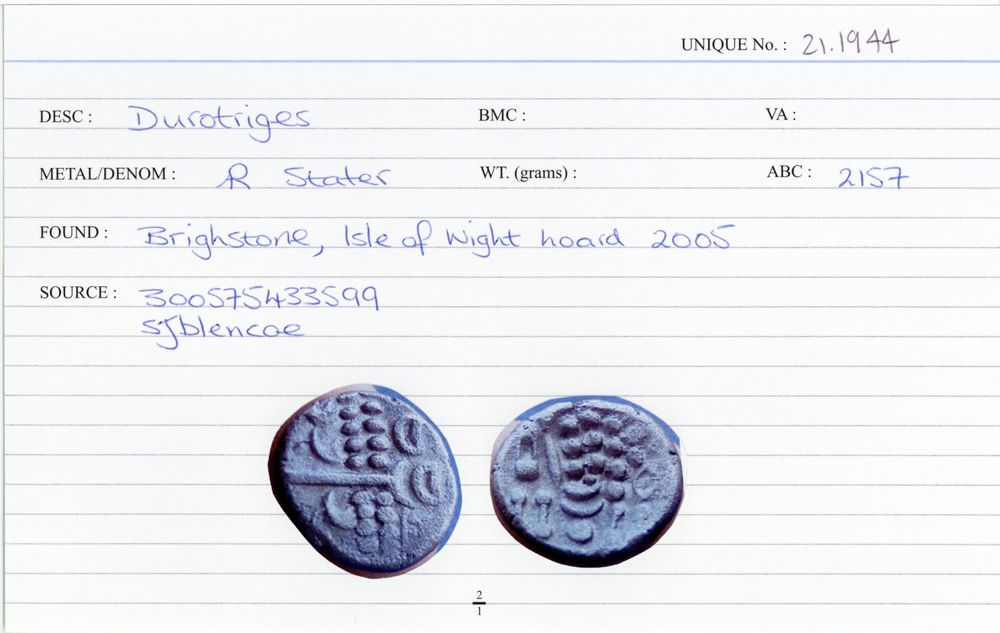 UNIQUE No. : 21.1944
DESC : Durotriges BMC : VA :
METAL/DENOM : AR Stater WT. (grams) : ABC : 2157
FOUND : Brighstone, Isle of Wight hoard 2005
SOURCE : 300575433599
sjblencoe
2
1